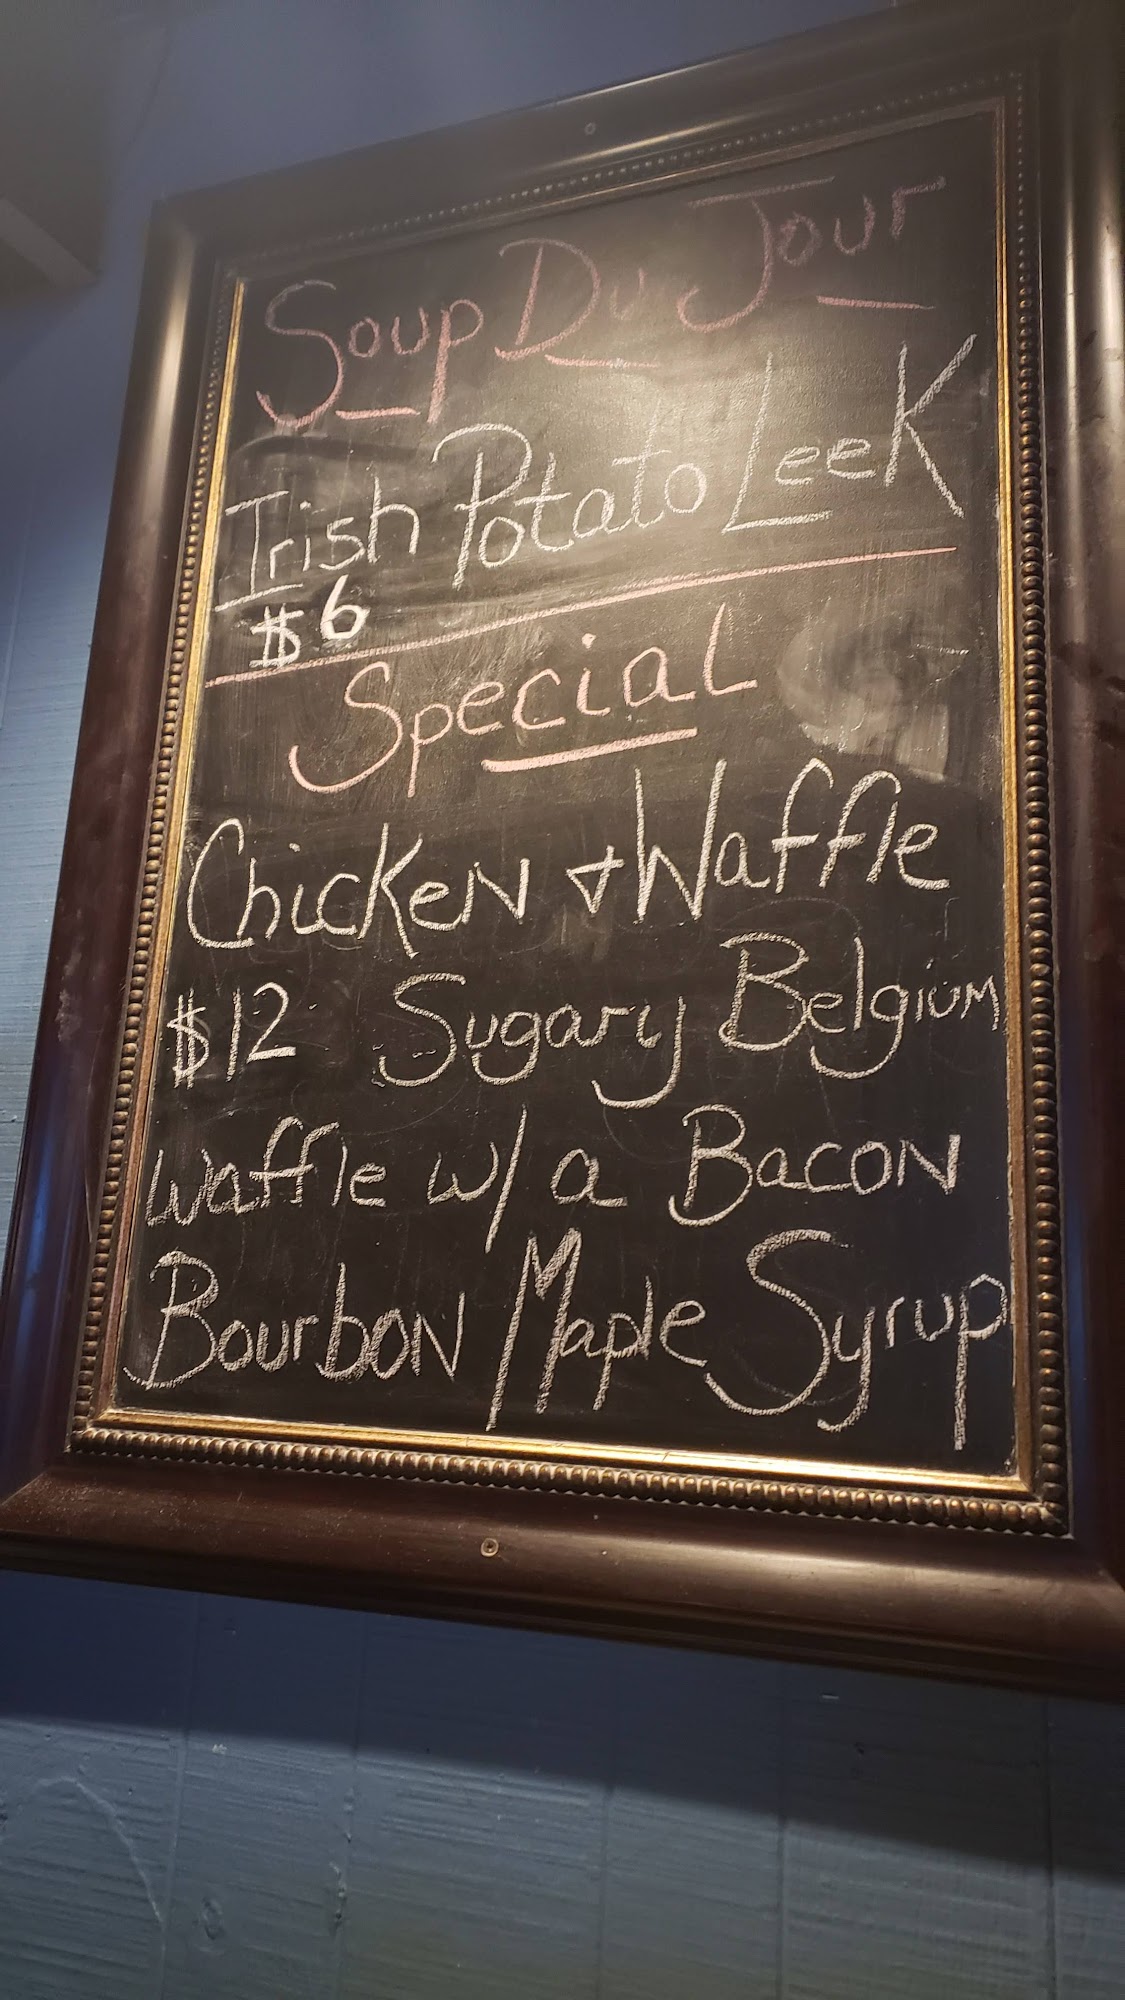 Soup Du Jour
Irish Potato Leek
$6
Special
Chicken & Waffle
$12 Sugary Belgium
Waffle w/ a Bacon
Bourbon Maple Syrup